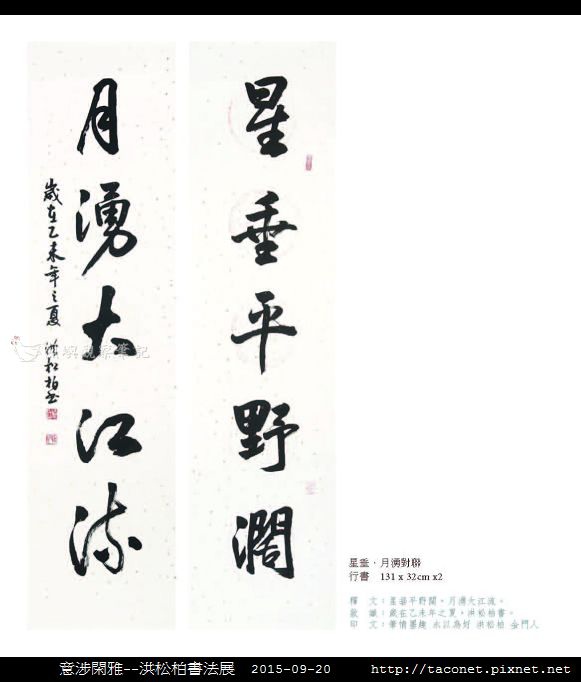 星垂平野濶
月湧大江流
歲在乙未年之夏 洪松柏書
星垂．月湧對聯
行書 131 x 32cm x2
釋 文：星垂平野闊，月湧大江流。
款 識：歲在乙未年之夏，洪松柏書。
印 文：筆情墨趣 永以為好 洪松柏 金門人
意涉閑雅--洪松柏書法展 2015-09-20 http://taconet.pixnet.net